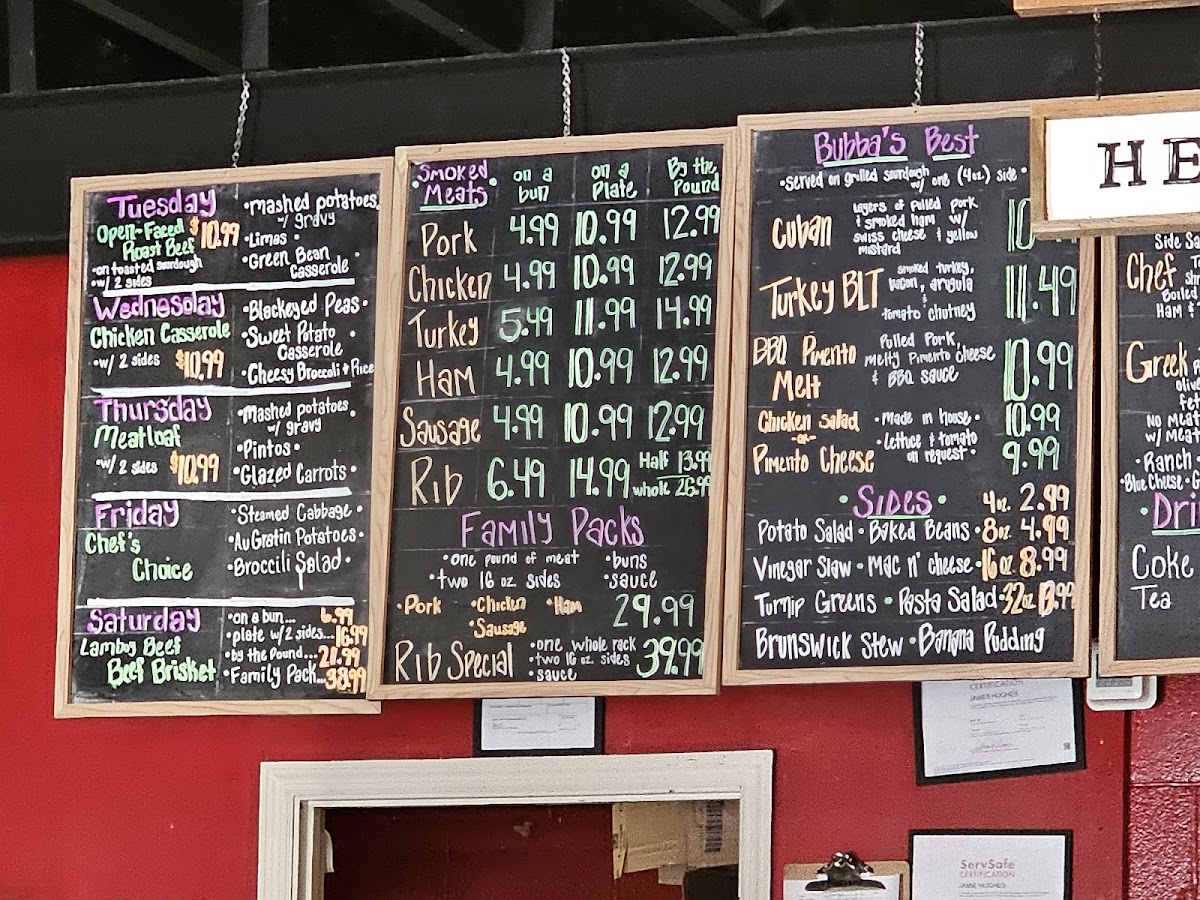 Tuesday
Open-Faced
Roast Beef
$10.99
•on toasted sourdough
•w/ 2 sides
•Mashed potatoes
w/ gravy
•Limas•
•Green Bean
Casserole•
Wednesday
Chicken Casserole
•w/ 2 sides $10.99
•Blackeyed Peas•
•Sweet Potato
Casserole•
•Cheesy Broccoli & Rice
Thursday
Meatloaf
•w/ 2 sides $10.99
•Mashed potatoes.
w/ gravy
•Pintos•
•Glazed Carrots•
Friday
Chef's
Choice
•Steamed Cabbage•
•AuGratin Potatoes•
•Broccili Salad•
Saturday
Lamboy Beef
Beef Brisket
•on a bun... 6.99
•plate w/2 sides...16.99
•by the pound...21.99
•Family Pack...38.99
•Smoked
Meats•
on a
bun
on a
Plate
By the
Pound
Pork 4.99 10.99 12.99
Chicken 4.99 10.99 12.99
Turkey 5.49 11.99 14.99
Ham 4.99 10.99 12.99
Sausage 4.99 10.99 12.99
Rib 6.49 14.99 Half 13.99
whole 26.99
Family Packs
•one pound of meat •buns
•two 16 oz. sides •sauce
•Pork •Chicken •Ham 29.99
•Sausage
Rib Special 39.99
•one whole rack
•two 16 oz. sides
•sauce
Bubba's Best
•served on grilled sourdough w/ one (4oz.) side•
Cuban
layers of pulled pork
& smoked ham w/
swiss cheese & yellow
mustard
10
Turkey BLT
smoked turkey,
bacon, arugula
&
tomato chutney
11.49
BBQ Pimento
Melt
Pulled Pork,
melty Pimento cheese
& BBQ sauce
10.99
Chicken salad
-or-
Pimento Cheese
•Made in house•
•Lettuce & tomato
on request•
10.99
9.99
•Sides•
4oz. 2.99
Potato Salad•Baked Beans•8oz 4.99
Vinegar Slaw•Mac n' cheese•16oz 8.99
Turnip Greens•Pasta Salad•32oz 13.99
Brunswick Stew•Banana Pudding
HE
Side Sa
Chef
Boiled
Ham &
Greek
oliv
fet
No Meat
w/ Meat
•Ranch•
•Blue Cheese•G
•Dri
Coke
Tea
CERTIFICATION
JAMIE HUGHES
ServSafe
CERTIFICATION
JAMIE HUGHES